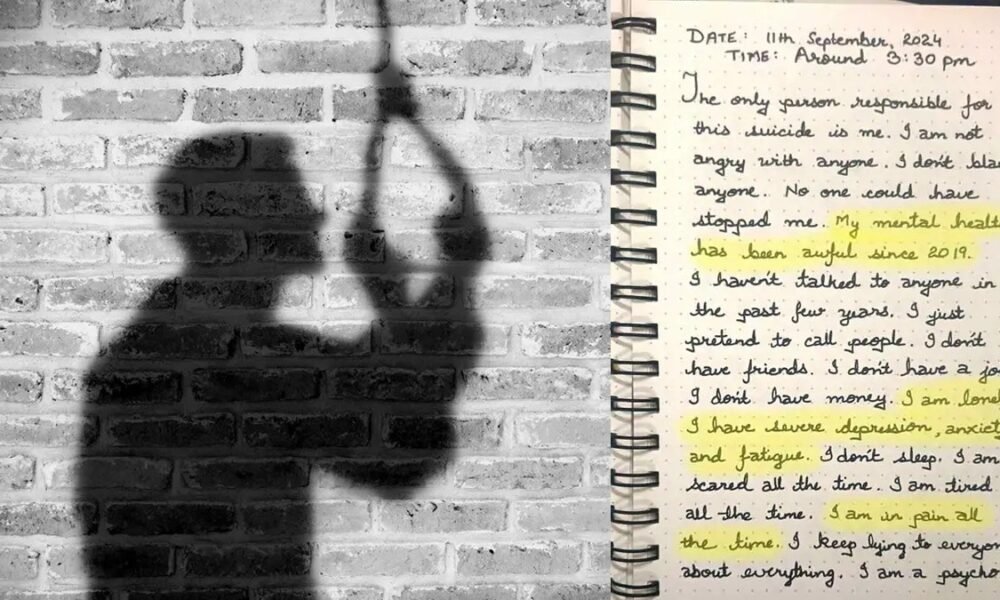 DATE: 11th September, 2024
TIME: Around 3:30 pm
The only person responsible for
this suicide is me. I am not
angry with anyone. I don't bla
anyone. No one could have
stopped me. My mental healt
has been awful since 2019.
I haven't talked to anyone in
the past few years. I just
pretend to call people. I don't
have friends. I don't have a jo
I don't have money. I am lone
I have severe depression, anxiet
and fatigue. I don't sleep. I am
scared all the time. I am tired
all the time. I am in pain all
the time. I keep lying to everyon
about everything. I am a psycho